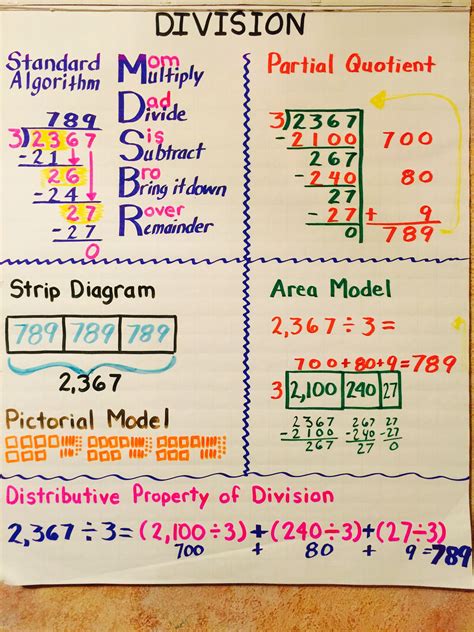 DIVISION
Standard Algorithm
Mom
Multiply
Dad
Divide
Sis
Subtract
Bro
Bring it down
Rover
Remainder
789
3)2367
-21
26
-24
27
-27
0
Partial Quotient
3)2367
-2100 700
267
-240 80
27
-27 + 9
0 789
Strip Diagram
789 789 789
2,367
Pictorial Model
Area Model
2,367÷3=
700+80+9=789
3 2,100 240 27
2367 267 27
-2100 -240 -27
267 27 0
Distributive Property of Division
2,367÷3=(2,100÷3)+(240÷3)+(27÷3)
700 + 80 + 9=789